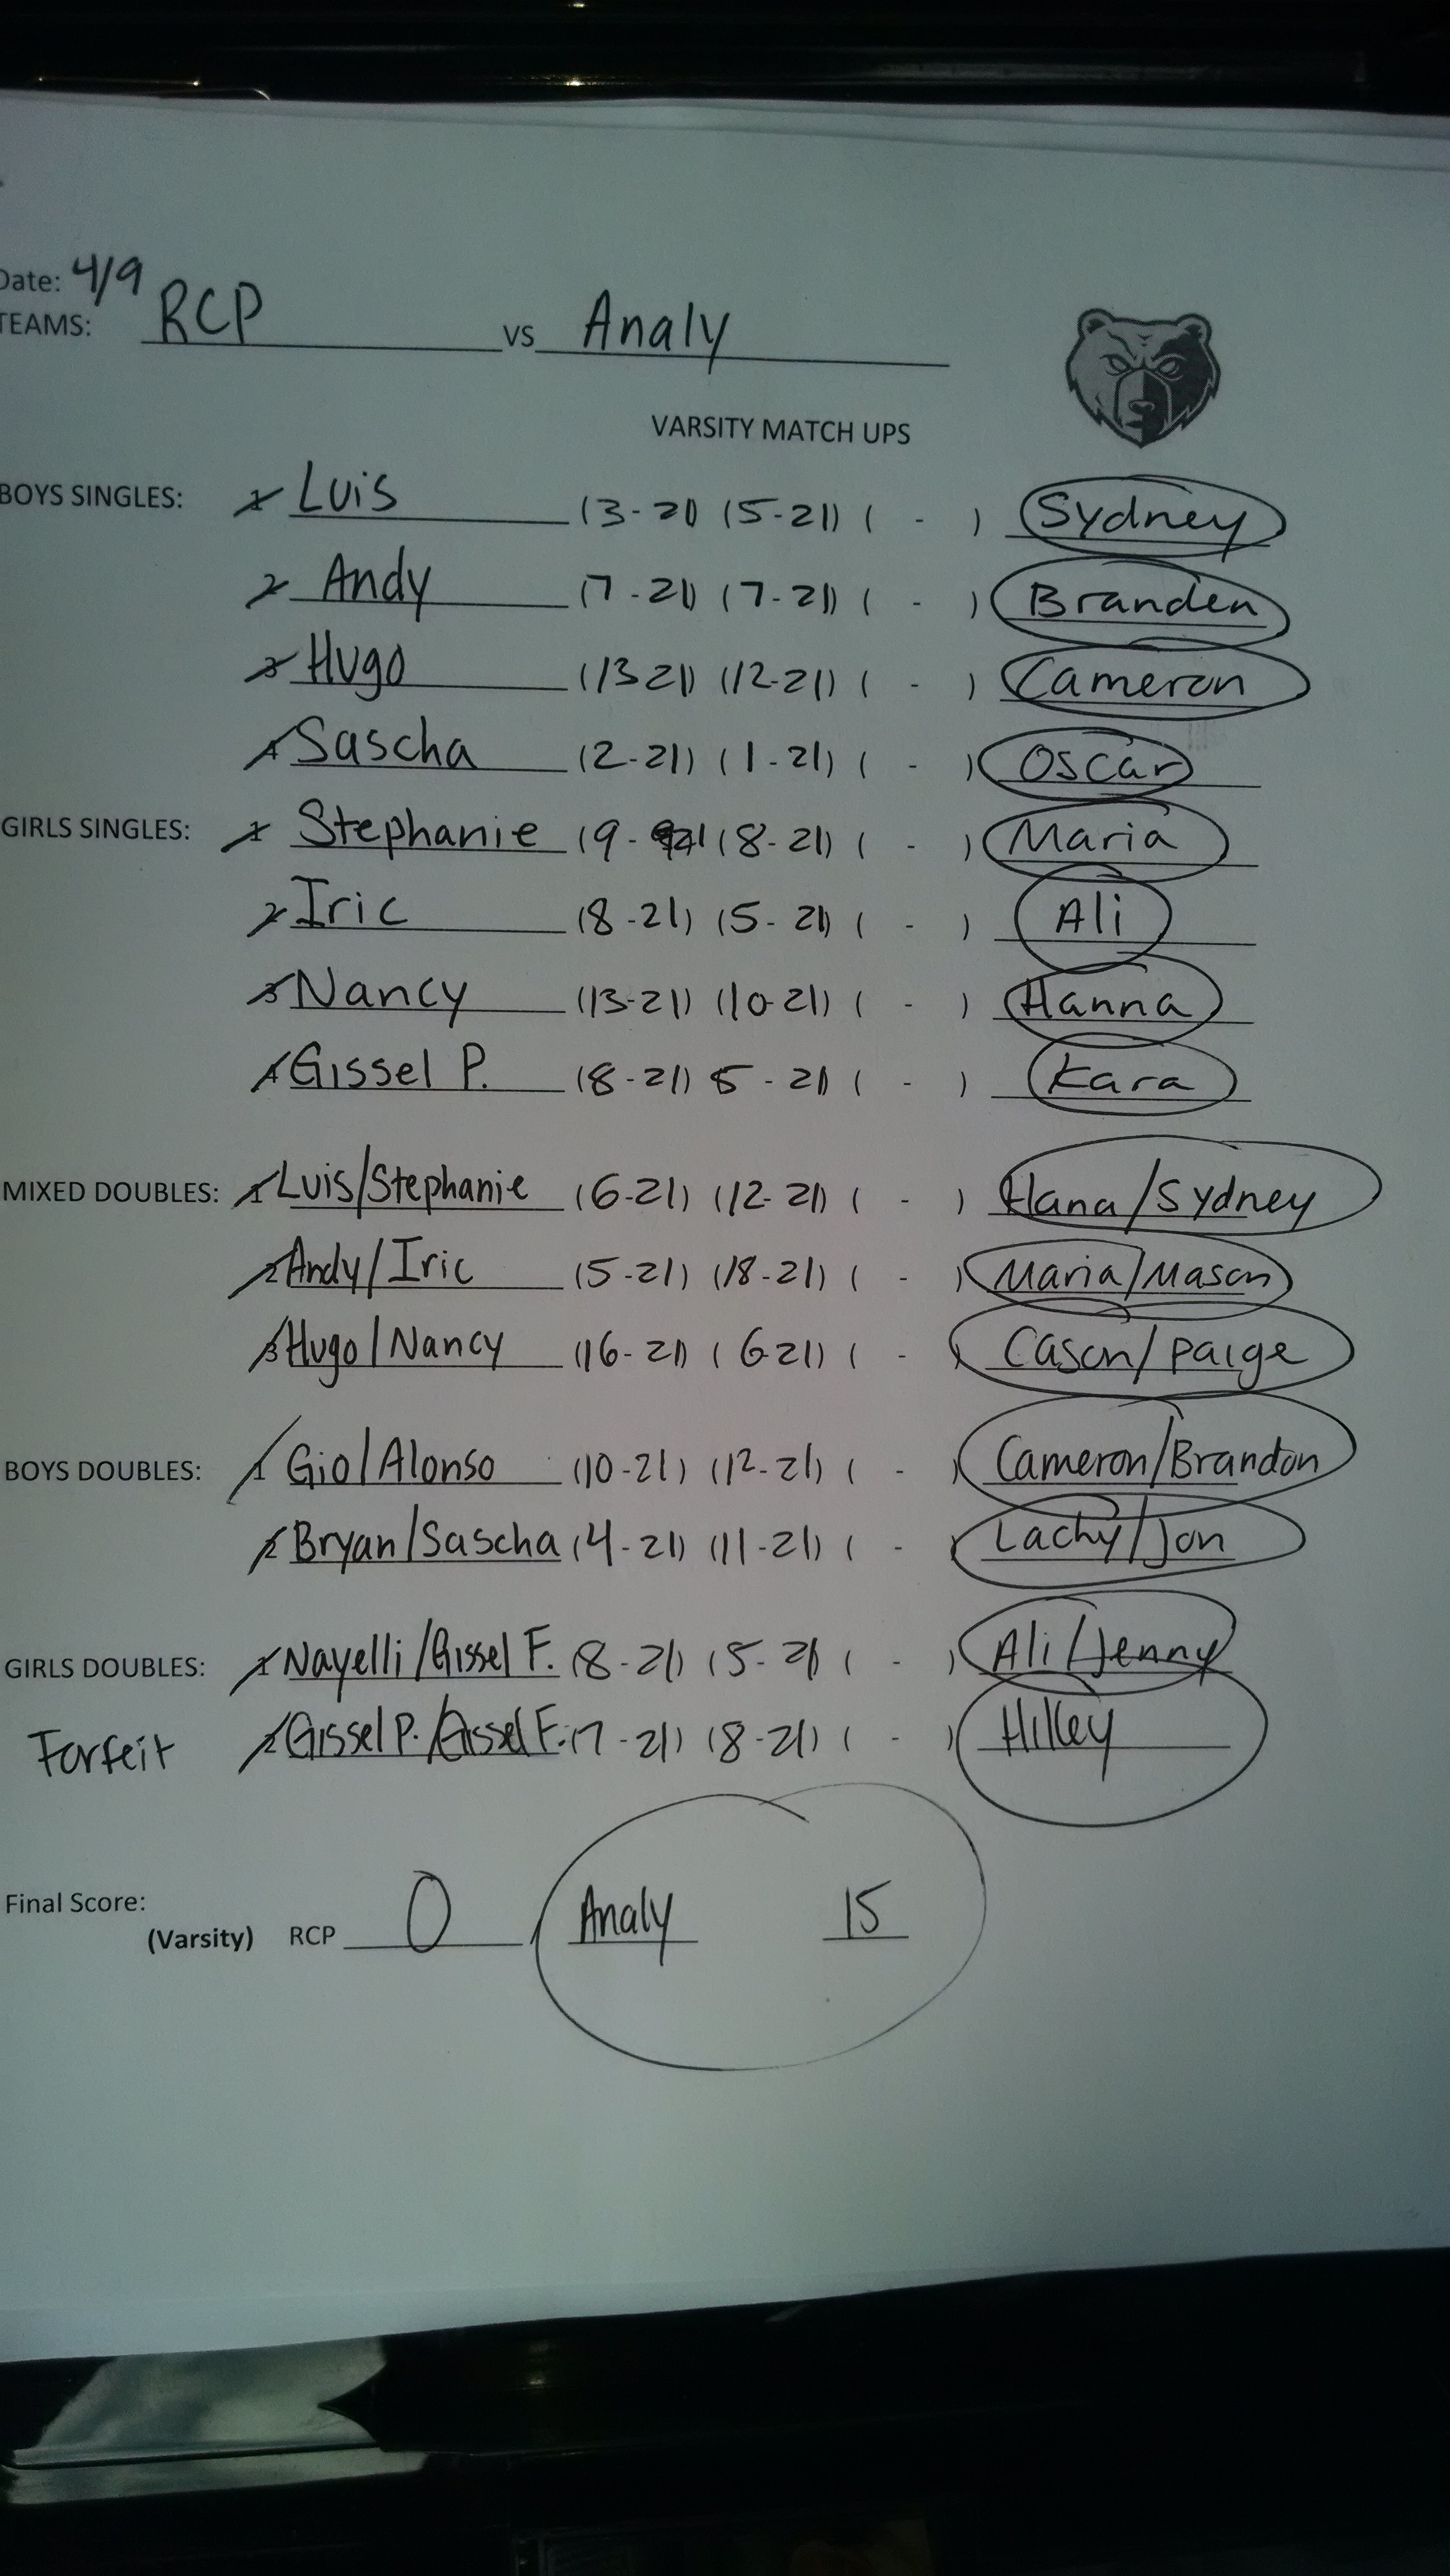 Date: 4/9
TEAMS: RCP vs Analy
VARSITY MATCH UPS
BOYS SINGLES: 1 Luis (3-21) (5-21) ( - ) Sydney
2 Andy (7-21) (7-21) ( - ) Branden
3 Hugo (13 21) (12-21) ( - ) Cameron
4 Sascha (2-21) (1-21) ( - ) Oscar
GIRLS SINGLES: 1 Stephanie (9- 21 (8-21) ( - ) Maria
2 Iric (8-21) (5-21) ( - ) Ali
3 Nancy (13-21) (10-21) ( - ) Hanna
4 Gissel P. (8-21) 5-21) ( - ) Kara
MIXED DOUBLES: 1 Luis/Stephanie (6-21) (12-21) ( - ) Hana/Sydney
2 Andy/Iric (5-21) (18-21) ( - ) Maria/Mason
3 Hugo/Nancy (16-21) (6-21) ( - ) Cason/Paige
BOYS DOUBLES: 1 Gio/Alonso (10-21) (12-21) ( - ) Cameron/Brandon
2 Bryan/Sascha (4-21) (11-21) ( - Lachy/Jon
GIRLS DOUBLES: 1 Nayelli/Gissel F. (8-21) (5-21 ( - ) Ali/Jenny
Forfeit 2 Gissel P./Gissel F. (7-21) (8-21) ( - ) Hilley
Final Score:
(Varsity) RCP 0, Analy 15